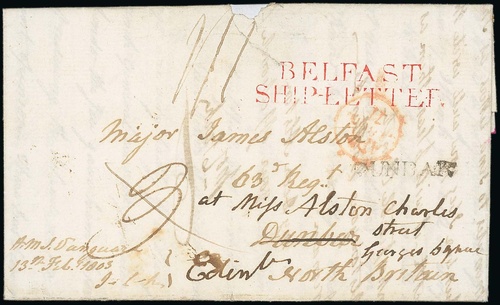 BELFAST
SHIP-LETTER
Major James Alston
63d Regt
DUNBAR
at Miss Alston Charles
Dunbar street
Georges Square
Edinr North Britain
13th Feb. 1803